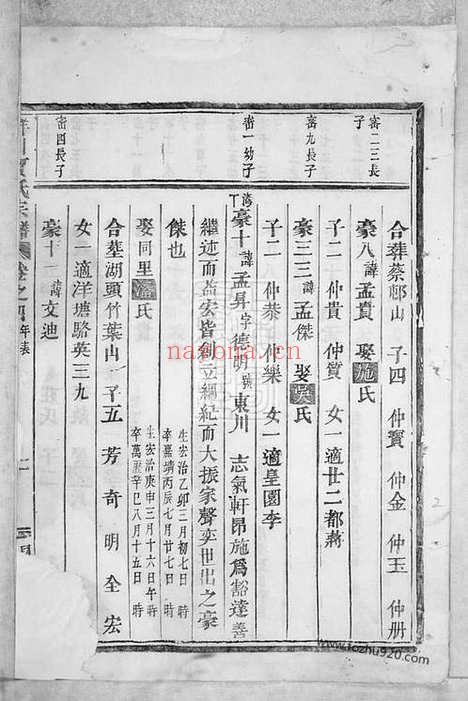 密二三長子
密九長子
密一幼子
密四長子
合葬蔡邨山 子四 仲寶 仲金 仲玉 仲册
豪八諱孟賁 娶施氏
子二 仲貴 仲質 女一適廿二都蔣
豪三三諱孟傑 娶吳氏
子二 仲恭 仲樂 女一適皇園李
豪十諱孟昇字德明號東川 志氣軒昂施爲豁達善
繼述而益宏皆創立綱紀而大振家聲奕世出之豪
傑也
生宏治乙卯三月初七日 時
卒嘉靖丙辰七月廿七日 時
娶同里潘氏
生宏治庚申三月十六日午時
卒萬曆辛巳八月十五日 時
合塟湖頭竹葉山 子五 芳 奇 明 全 宏
女一適洋塘駱英三九
豪十一諱文迪
氏宗譜 卷之四年表
nayona.cn
www.tozhu920.com